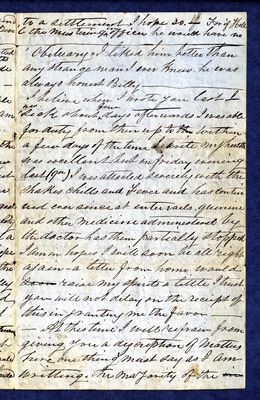 to a settlement I hope so. — For if
to the mustering officer he would have no
— Obituary — I liked him better than
any strange man I ever knew he was
always honest Billy.
I believe when I wrote you last I
Sick about days afterwards I was able
for duty from then up to within
a few days of the time I write my health
was excellent last on friday evening
last I was attacked severely with the
Shakes chills and Fever and has contin
ued ever since at entervails, quinine
and other medicine administered by
the doctor has them partially stopped
I am in hopes I will soon be all right
again — a letter from home would
raise my spirits a little I trust
you will not delay on the receipt of
this in granting me the favor
— At this time I will refrain from
giving you a discription of matters
here one thing I must say as I am
writting. the majority of the